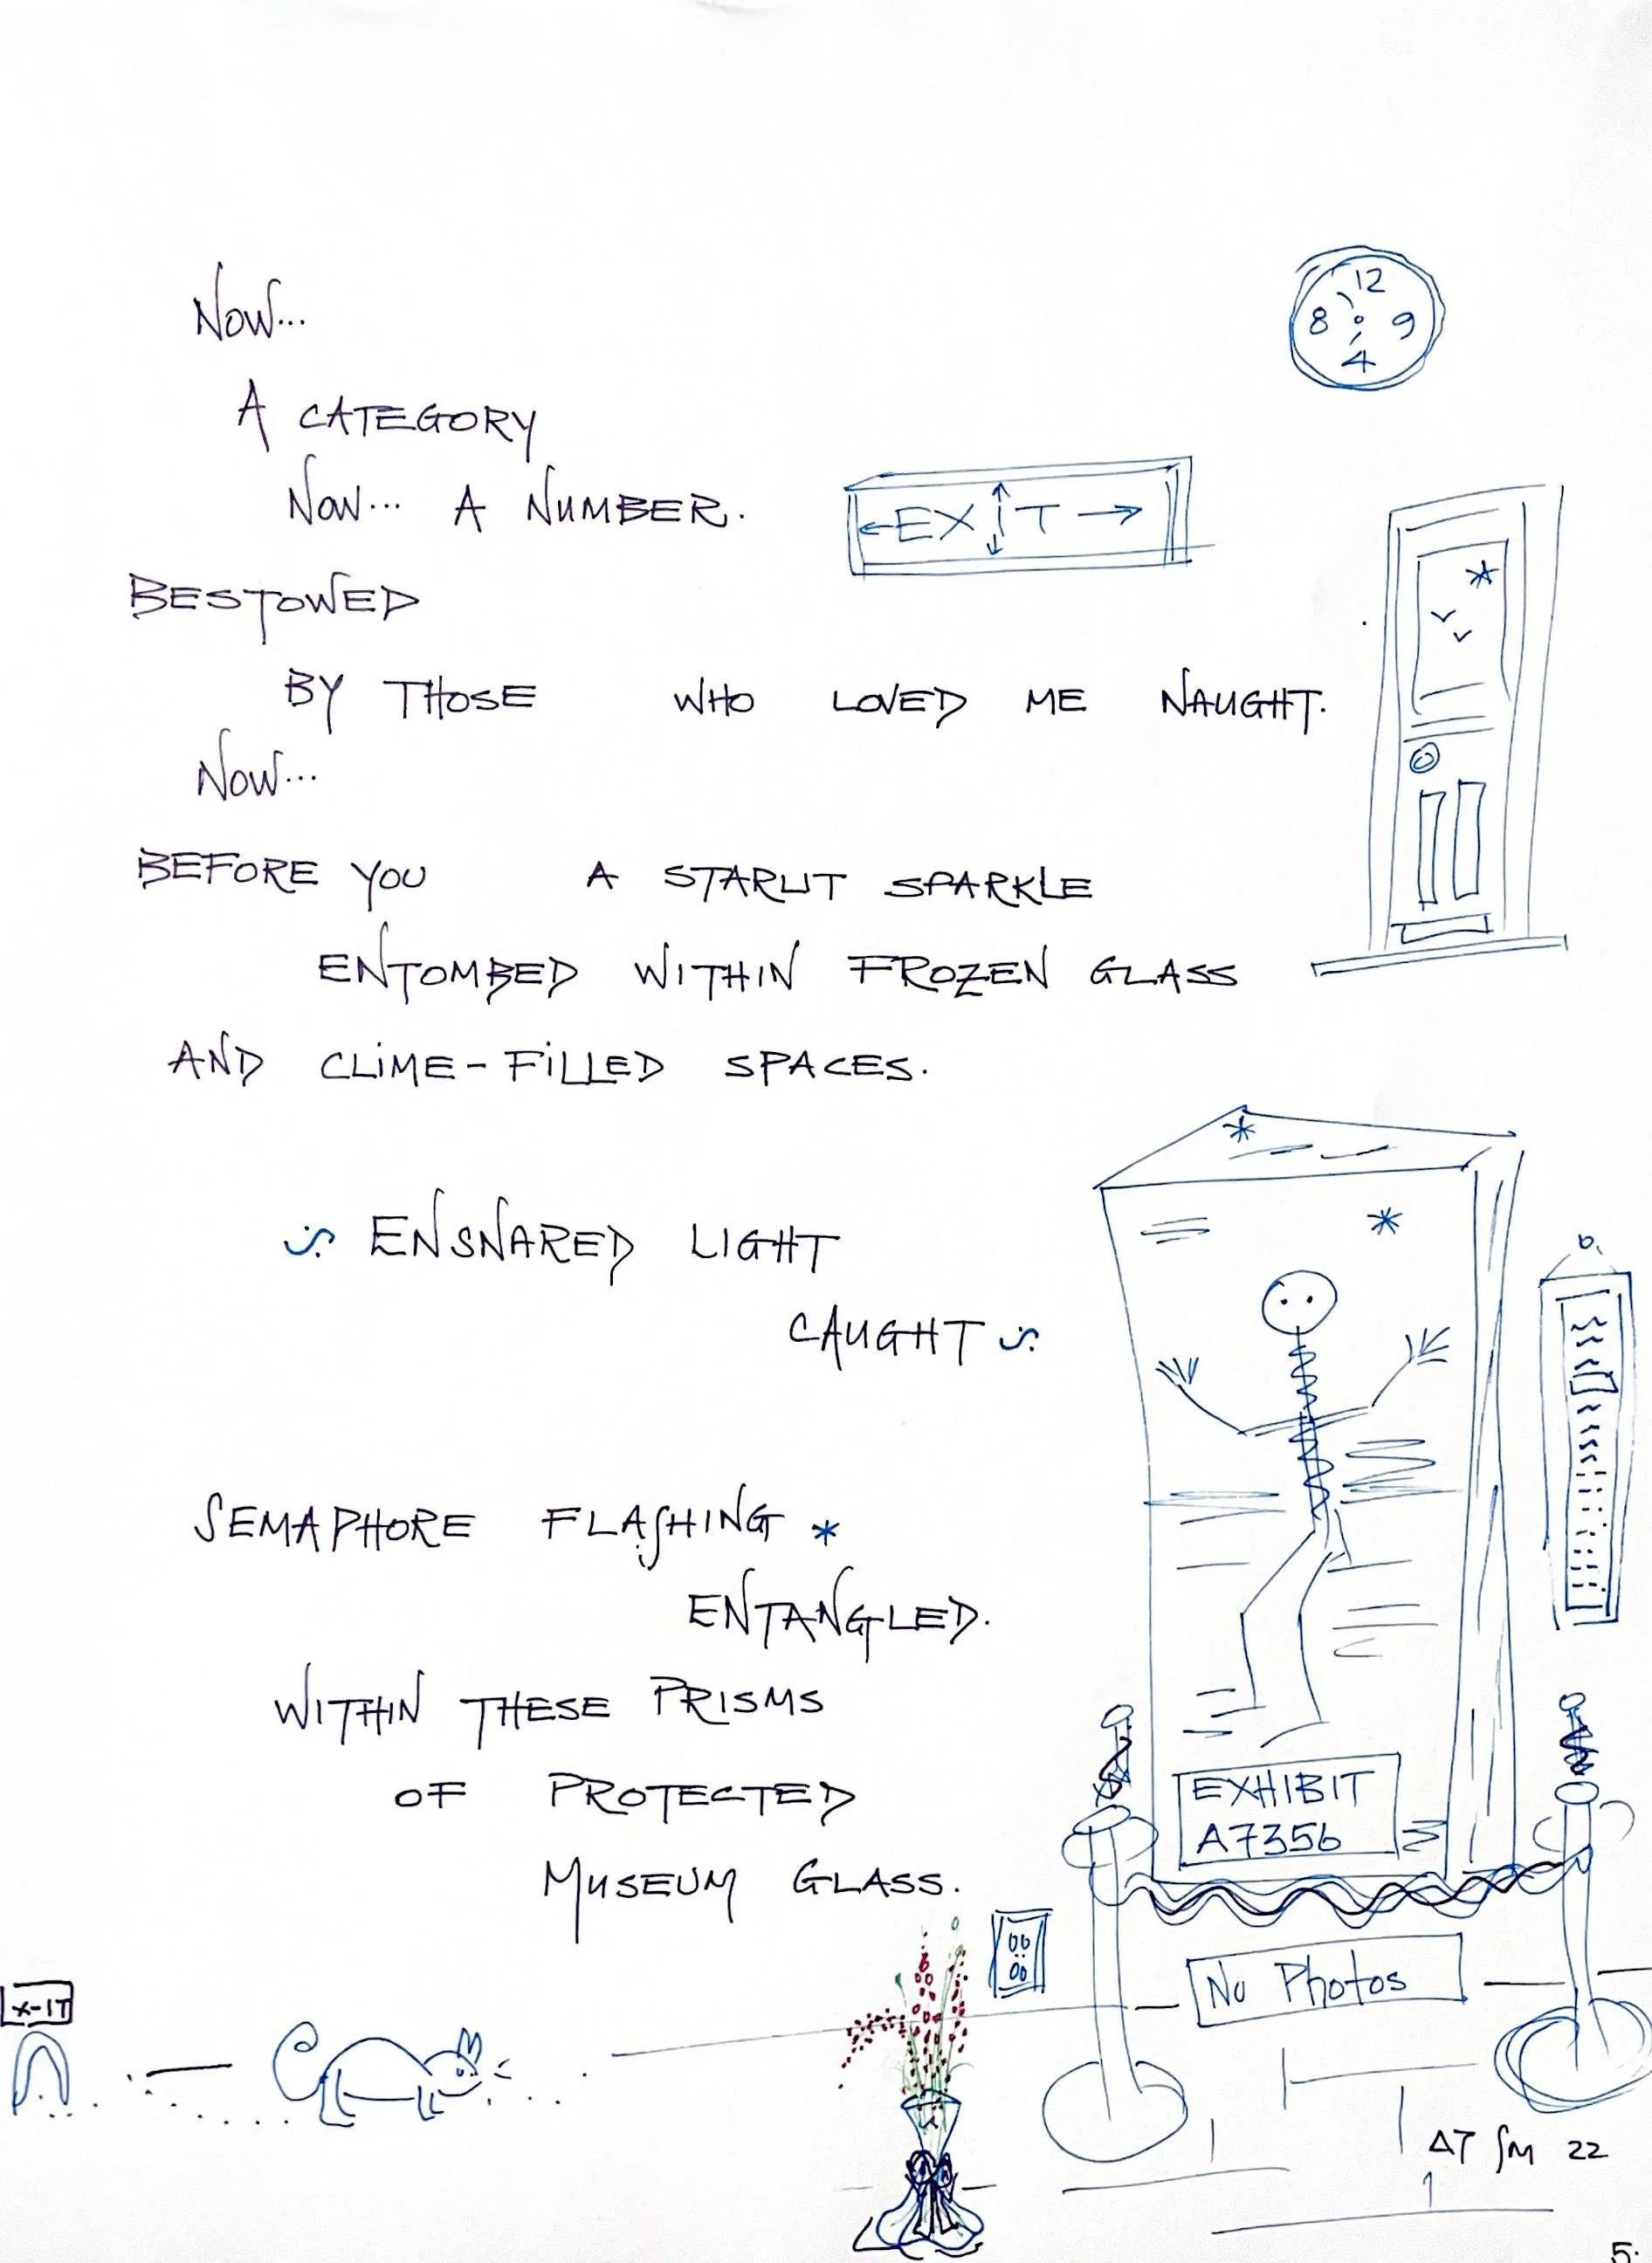 12
8 9
4
Now...
A CATEGORY
Now... A NUMBER.
←EXIT→
BESTOWED
BY THOSE WHO LOVED ME NAUGHT.
Now...
BEFORE YOU A STARLIT SPARKLE
ENTOMBED WITHIN FROZEN GLASS
AND CLiME-FiLLED SPACES.
ENSNARED LIGHT
CAUGHT
SEMAPHORE FLASHING *
ENTANGLED.
WITHIN THESE PRISMS
OF PROTECTED
MUSEUM GLASS.
EXHIBIT
A7356
No Photos
X-IT
ΔT ʃM 22
5.